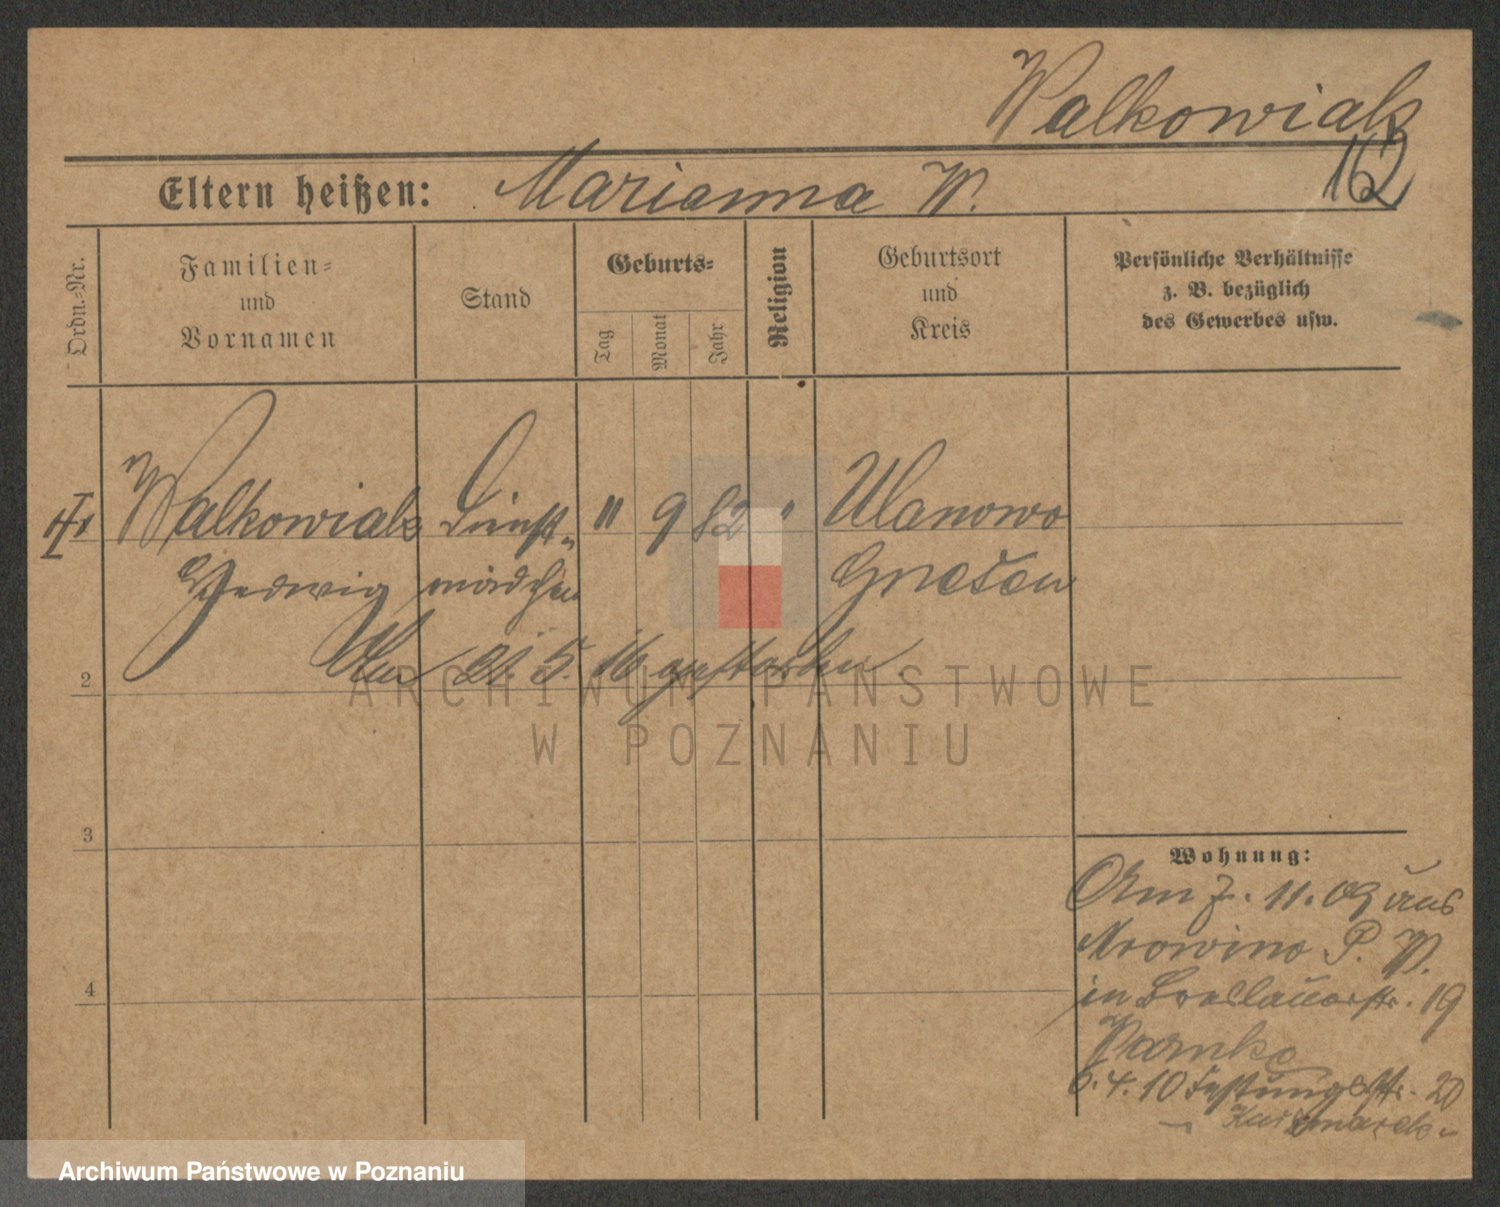 Walkowiak
162
Eltern heißen: Marianna W.
Ordn.-Nr.
Familien-
und
Vornamen
Stand
Geburts-
Tag
Monat
Jahr
Religion
Geburtsort
und
Kreis
Persönliche Verhältnisse
z. B. bezüglich
des Gewerbes usw.
Walkowiak Dienst- " 9 82 " Ulanowo
Hedwig mädchen Gnesen
Am 21. 5. 16 gestorben
2
3
4
Wohnung:
Am 7. 11. 09 aus
Mrowino P. W.
in Breslauerstr. 19
6. 4. 10 Festungsstr. 20
ARCHIWUM PAŃSTWOWE
W POZNANIU
Archiwum Państwowe w Poznaniu